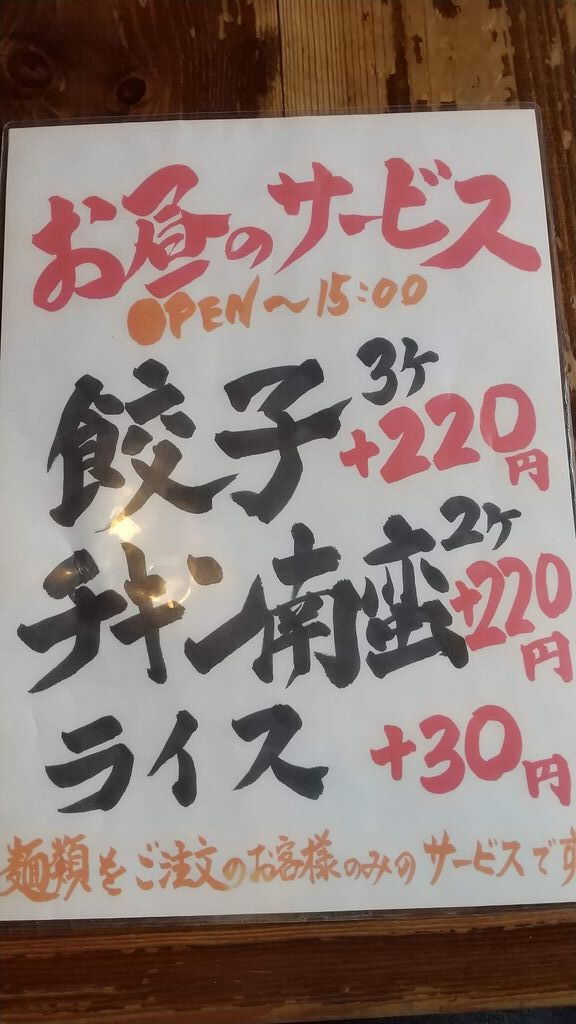 お昼のサービス
OPEN〜15:00
餃子 3ケ +220円
チキン南蛮 2ケ +220円
ライス +30円
麺類をご注文のお客様のみのサービスです